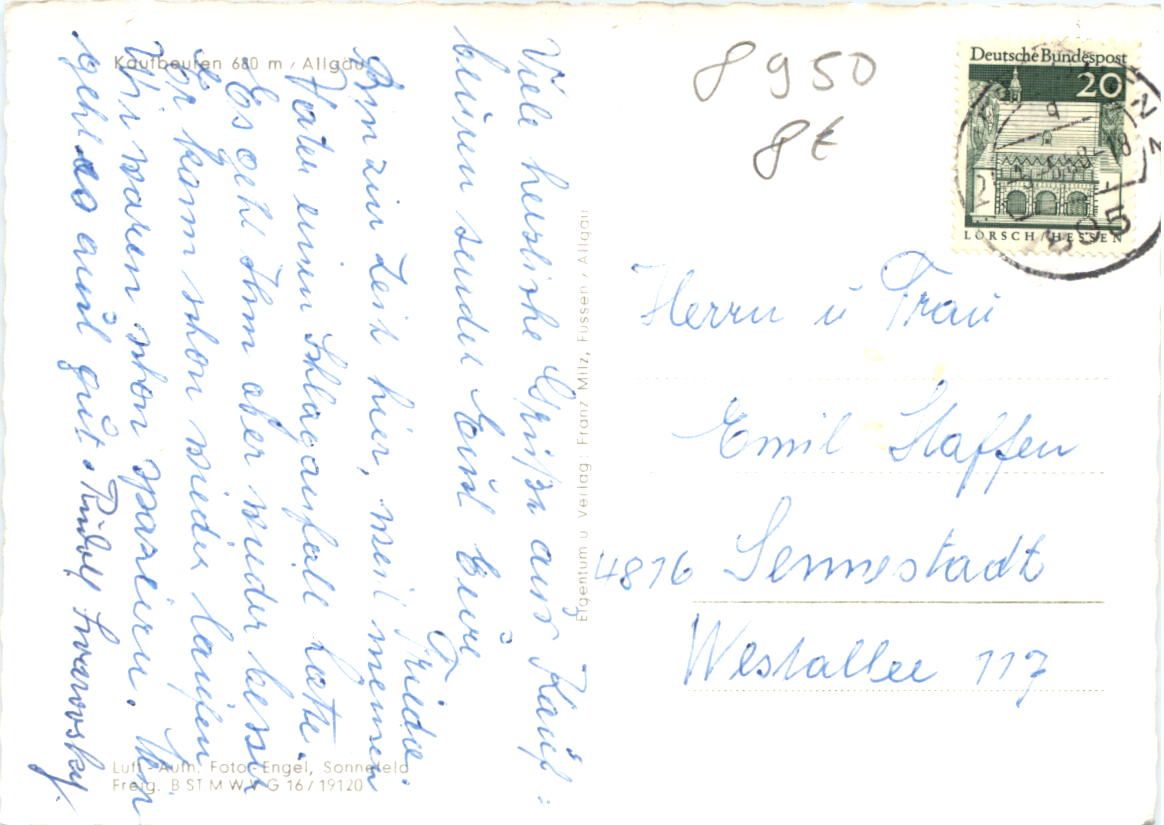 Kaufbeuren 680 m / Allgäu
Viele herzliche Grüße aus Kauf=
beuren sendet Euch Eure
Frieda.
Bin zur Zeit hier, weil meinen
Vater einen Schlaganfall hatte.
Es geht Ihm aber wieder besser
Er kann schon wieder laufen
Wir waren schon spazieren. Uns
geht es auch gut. Rudolf
Eigentum u Verlag: Franz Milz, Füssen / Allgäu
Luft-Aufn. Foto-Engel, Sonnefeld
Freig. B ST M W V G 16/19120
8950
8€
Deutsche Bundespost
20
LORSCH / HESSEN
895
Herrn u Frau
Emil Staffen
4816 Sennestadt
Westallee 117